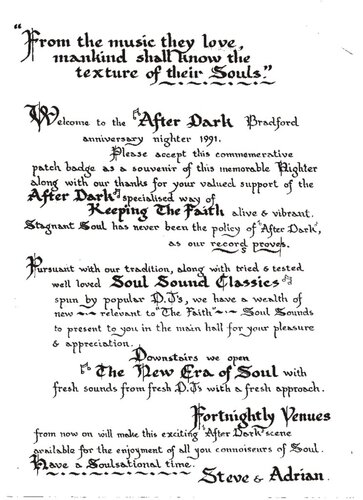 "From the music they love,
mankind shall know the
texture of their Souls."
Welcome to the "After Dark" Bradford
anniversary nighter 1991.
Please accept this commemorative
patch badge as a souvenir of this memorable Nighter
along with our thanks for your valued support of the
After Dark" specialised way of
Keeping The Faith alive & vibrant.
Stagnant Soul has never been the policy of "After Dark",
as our record proves.
Pursuant with our tradition, along with tried & tested
well loved Soul Sound Classics
spun by popular D.J's, we have a wealth of
new -- relevant to "The Faith" -- Soul Sounds
to present to you in the main hall for your pleasure
& appreciation.
Downstairs we open
The New Era of Soul with
fresh sounds from fresh D.J's with a fresh approach.
Fortnightly Venues
from now on will make this exciting "After Dark" scene
available for the enjoyment of all you connoiseurs of Soul.
Have a Soulsational time.
Steve & Adrian.